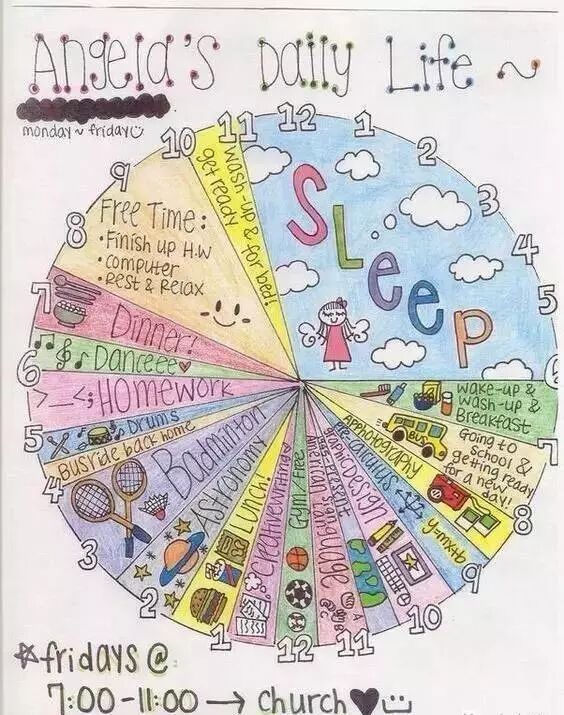 Angela's Daily Life ~
monday ~ friday
12
1
2
3
4
5
6
7
8
9
10
11
12
1
2
3
4
5
6
7
8
9
10
11
SLeep
wake-up &
wash-up &
Breakfast
Going to
school &
getting ready
for a new
day!
BUS
AP Photography
Pre-calculus
y=mx+b
graphic Design
American sign language
Gym / Free
creative writing
Lunch!
Astronomy
Badminton
Bus ride back home
Drums
>_<; Homework
Danceee♥
Dinner!
Free Time:
• Finish up H.W
• computer
• Rest & Relax
wash-up &
get ready
for bed!
☆fridays @
7:00-11:00 → church ♥